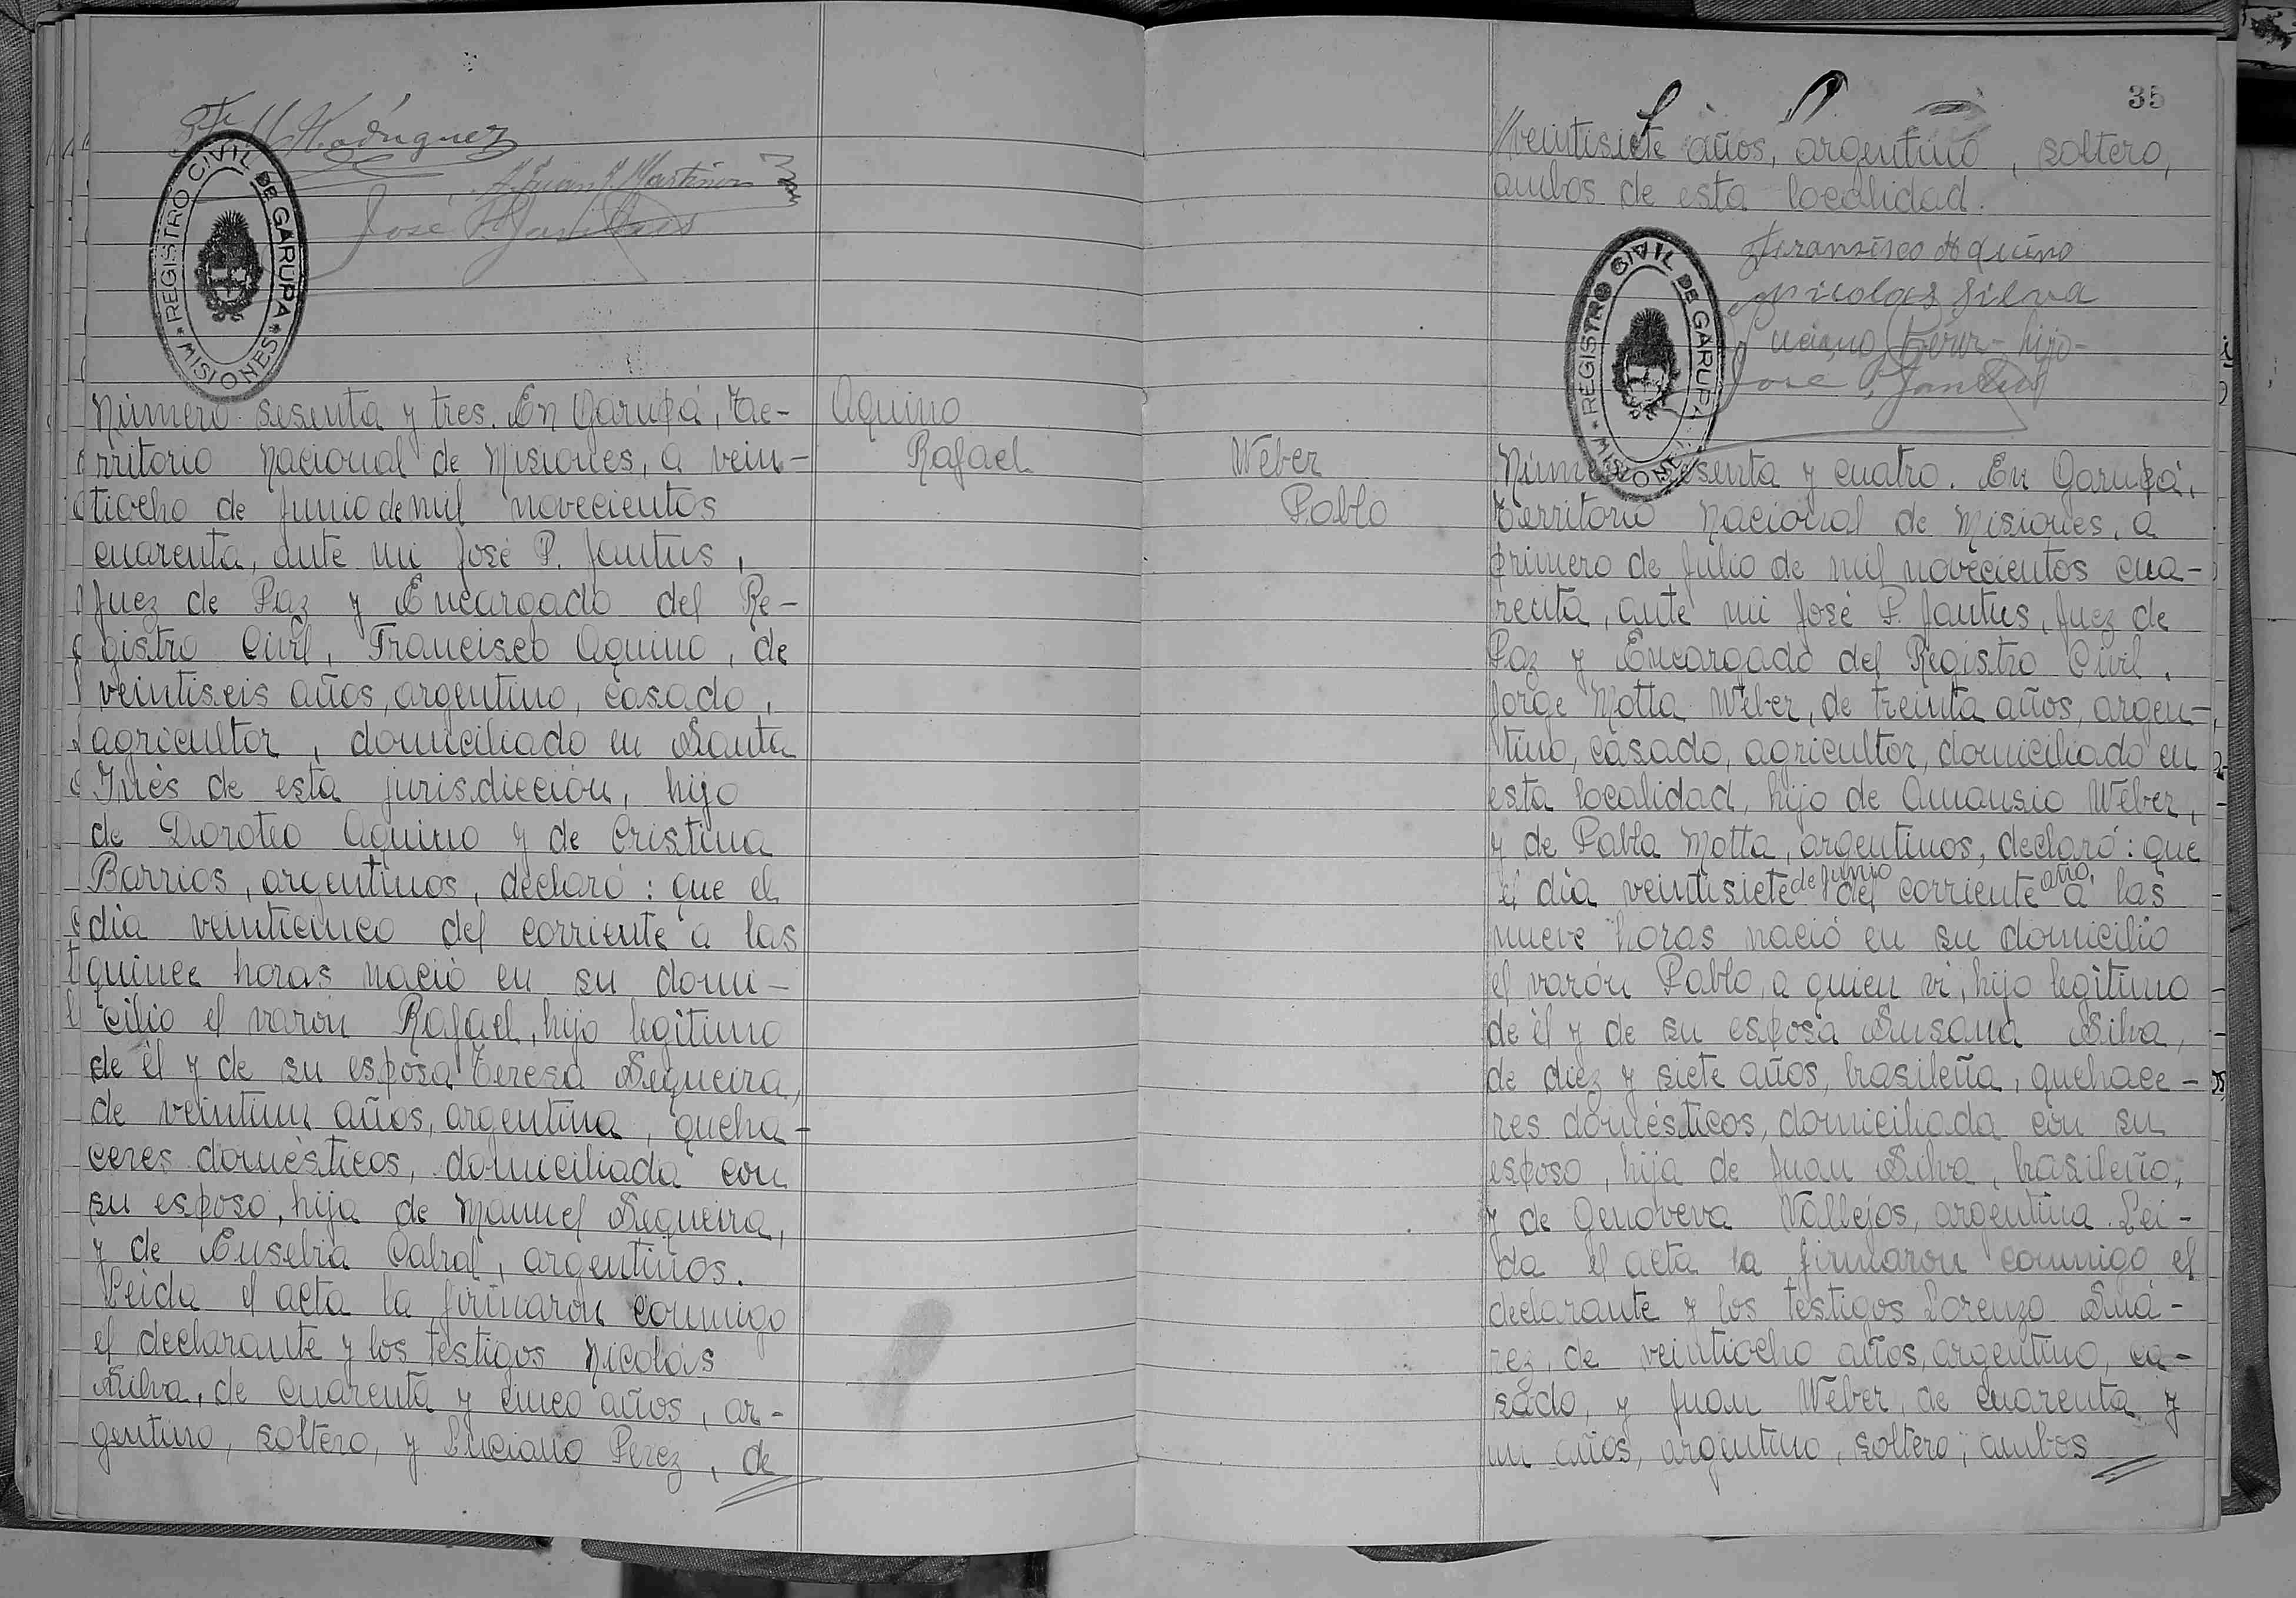 Rodriguez
Juan J. Martinez
José P. Jantus
REGISTRO CIVIL DE GARUPA
* MISIONES *
Número sesenta y tres. En Garupá, Te-
rritorio Nacional de Misiones, a vein-
tiocho de Junio de mil novecientos
cuarenta, ante mi José P. Jantus,
Juez de Paz y Encargado del Re-
gistro Civil, Francisco Aquino, de
veintiseis años, argentino, casado,
agricultor, domiciliado en Santa
Inés de esta jurisdicción, hijo
de Doroteo Aquino y de Cristina
Barrios, argentinos, declaró: que el
día veinticinco del corriente a las
quince horas nació en su domi-
cilio el varón Rafael, hijo legitimo
de él y de su esposa Teresa Sequeira,
de veintiun años, argentina, queha-
ceres domésticos, domiciliada con
su esposo, hija de Manuel Sequeira,
y de Eusebia Cabral, argentinos.
Leida el acta la firmaron conmigo
el declarante y los testigos Nicolás
Silva, de cuarenta y cinco años, ar-
gentino, soltero, y Luciano Perez, de
Aquino
Rafael
Weber
Pablo
35
veintisiete años, argentino, soltero,
ambos de esta localidad.
Fransisco Aquino
Nicolas Silva
Luciano Perez - hijo -
José P. Jantus
REGISTRO CIVIL DE GARUPA
* MISIONES
Número sesenta y cuatro. En Garupá,
Territorio Nacional de Misiones, a
primero de Julio de mil novecientos cua-
renta, ante mi José P. Jantus, Juez de
Paz y Encargado del Registro Civil,
Jorge Motta Weber, de treinta años, argen-
tino, casado, agricultor, domiciliado en
esta localidad, hijo de Amansio Weber,
y de Pabla Motta, argentinos, declaró: que
el día veintisiete de Junio del corriente año, a las
nueve horas nació en su domicilio
el varón Pablo, a quien vi, hijo legitimo
de él y de su esposa Susana Silva,
de diez y siete años, brasileña, quehace-
res domésticos, domiciliada con su
esposo, hija de Juan Silva, brasileño,
y de Genoveva Vallejos, argentina. Lei-
da el acta la firmaron conmigo el
declarante y los testigos Lorenzo Suá-
rez, de veintiocho años, argentino, ca-
sado, y Juan Weber, de cuarenta y
un años, argentino, soltero, ambos